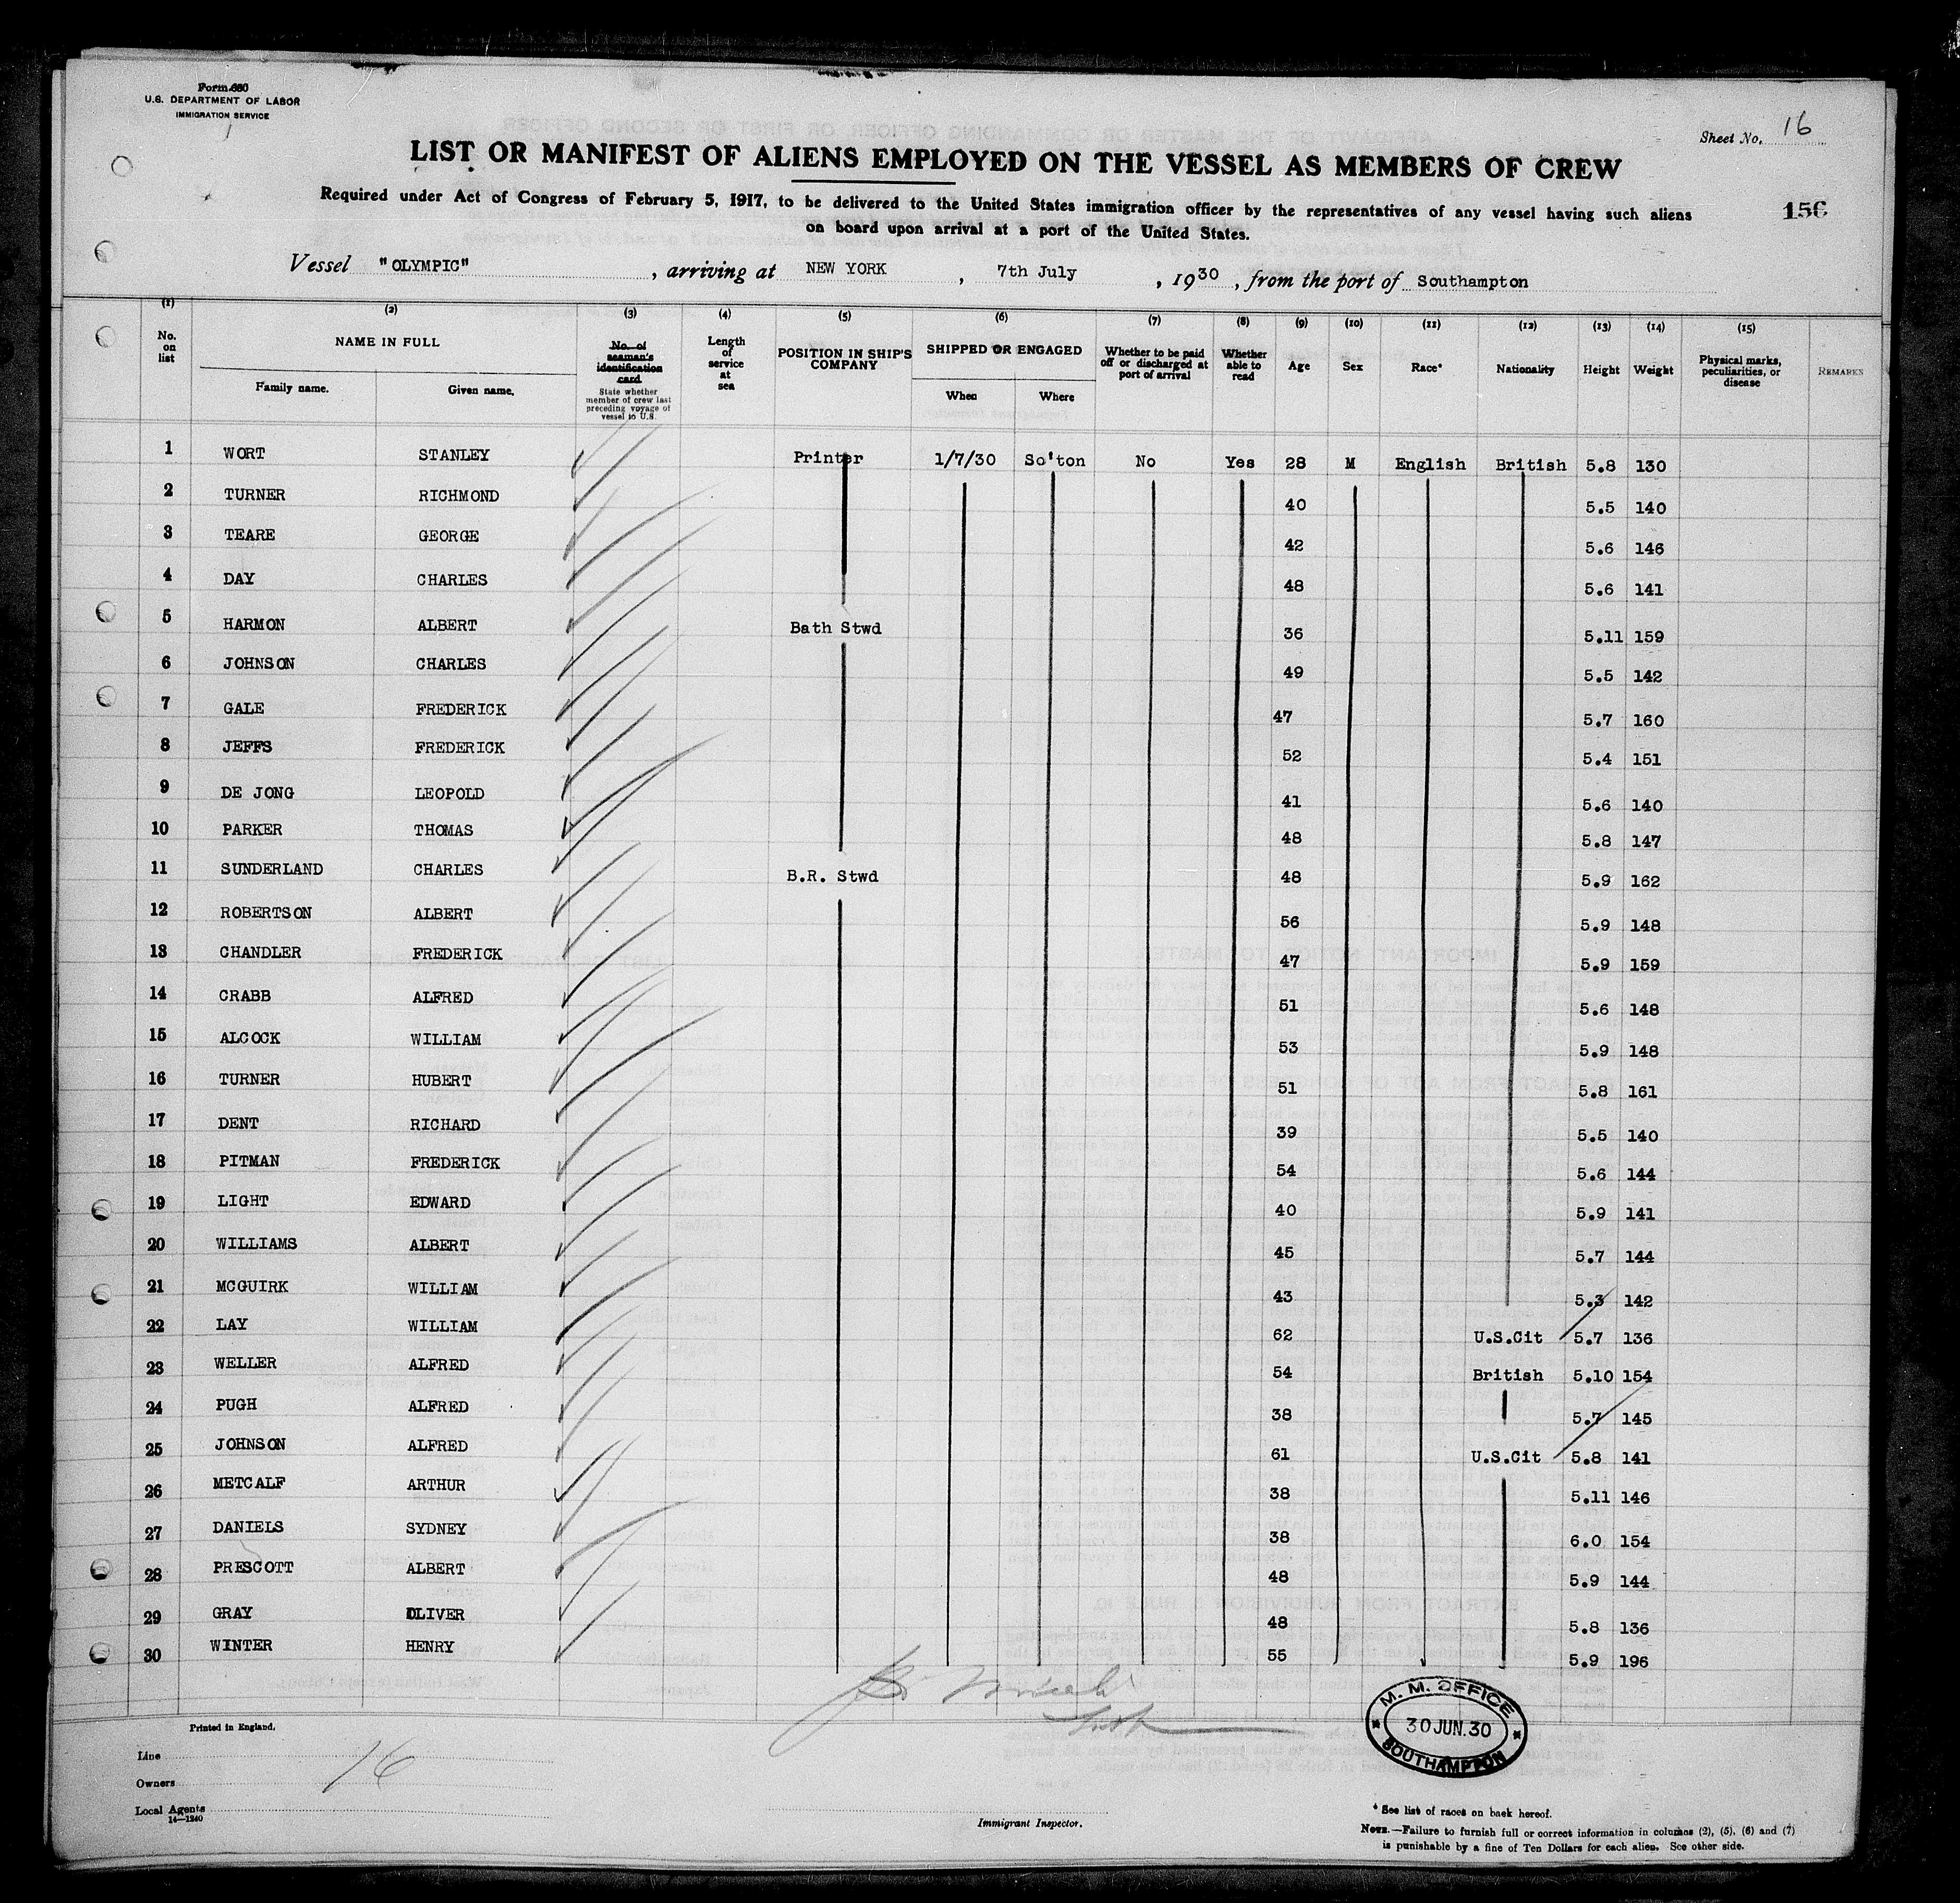 Form 680
U.S. DEPARTMENT OF LABOR
IMMIGRATION SERVICE
Sheet No. 16
LIST OR MANIFEST OF ALIENS EMPLOYED ON THE VESSEL AS MEMBERS OF CREW
Required under Act of Congress of February 5, 1917, to be delivered to the United States immigration officer by the representatives of any vessel having such aliens
on board upon arrival at a port of the United States.
156
Vessel "OLYMPIC", arriving at NEW YORK, 7th July, 1930, from the port of Southampton
(1) (2) (3) (4) (5) (6) (7) (8) (9) (10) (11) (12) (13) (14) (15)
No. on list
NAME IN FULL
Family name. Given name.
No. of seaman's identification card
State whether member of crew last preceding voyage of vessel to U.S.
Length of service at sea
POSITION IN SHIP'S COMPANY
SHIPPED OR ENGAGED
When Where
Whether to be paid off or discharged at port of arrival
Whether able to read
Age
Sex
Race*
Nationality
Height
Weight
Physical marks, peculiarities, or disease
REMARKS
1 WORT STANLEY Printer 1/7/30 So'ton No Yes 28 M English British 5.8 130
2 TURNER RICHMOND 40 5.5 140
3 TEARE GEORGE 42 5.6 146
4 DAY CHARLES 48 5.6 141
5 HARMON ALBERT Bath Stwd 36 5.11 159
6 JOHNSON CHARLES 49 5.5 142
7 GALE FREDERICK 47 5.7 160
8 JEFFS FREDERICK 52 5.4 151
9 DE JONG LEOPOLD 41 5.6 140
10 PARKER THOMAS 48 5.8 147
11 SUNDERLAND CHARLES B.R. Stwd 48 5.9 162
12 ROBERTSON ALBERT 56 5.9 148
13 CHANDLER FREDERICK 47 5.9 159
14 CRABB ALFRED 51 5.6 148
15 ALCOCK WILLIAM 53 5.9 148
16 TURNER HUBERT 51 5.8 161
17 DENT RICHARD 39 5.5 140
18 PITMAN FREDERICK 54 5.6 144
19 LIGHT EDWARD 40 5.9 141
20 WILLIAMS ALBERT 45 5.7 144
21 MCGUIRK WILLIAM 43 5.3 142
22 LAY WILLIAM 62 U.S.Cit 5.7 136
23 WELLER ALFRED 54 British 5.10 154
24 PUGH ALFRED 38 5.7 145
25 JOHNSON ALFRED 61 U.S.Cit 5.8 141
26 METCALF ARTHUR 38 5.11 146
27 DANIELS SYDNEY 38 6.0 154
28 PRESCOTT ALBERT 48 5.9 144
29 GRAY OLIVER 48 5.8 136
30 WINTER HENRY 55 5.9 196
M. M. OFFICE
30 JUN. 30
SOUTHAMPTON
Printed in England.
Line
16
Owners
Local Agents
14—1240
Immigrant Inspector.
* See list of races on back hereof.
NOTE.—Failure to furnish full or correct information in columns (2), (5), (6) and (7)
is punishable by a fine of Ten Dollars for each alien. See other side.